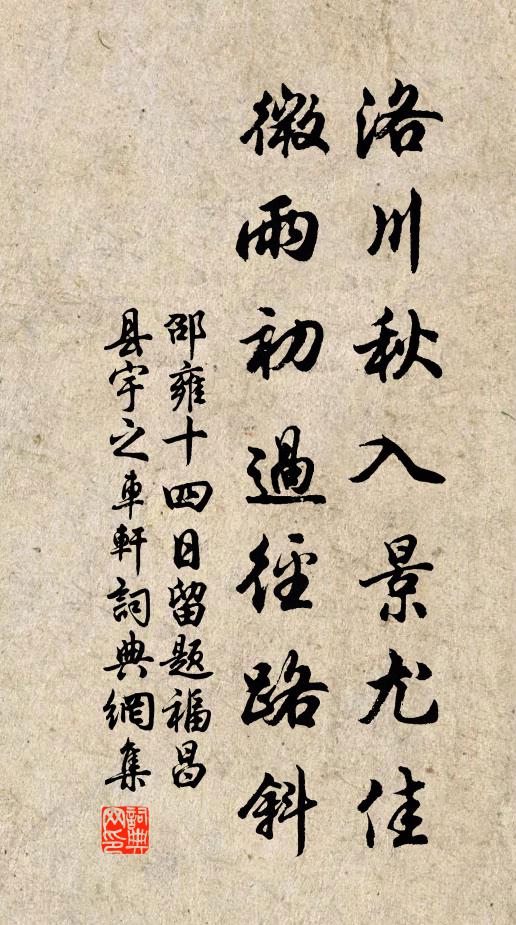 洛川秋入景尤佳
微雨初過徑路斜
邵雍十四日留題福昌
县宇之車軒詞典網集
詞典网印